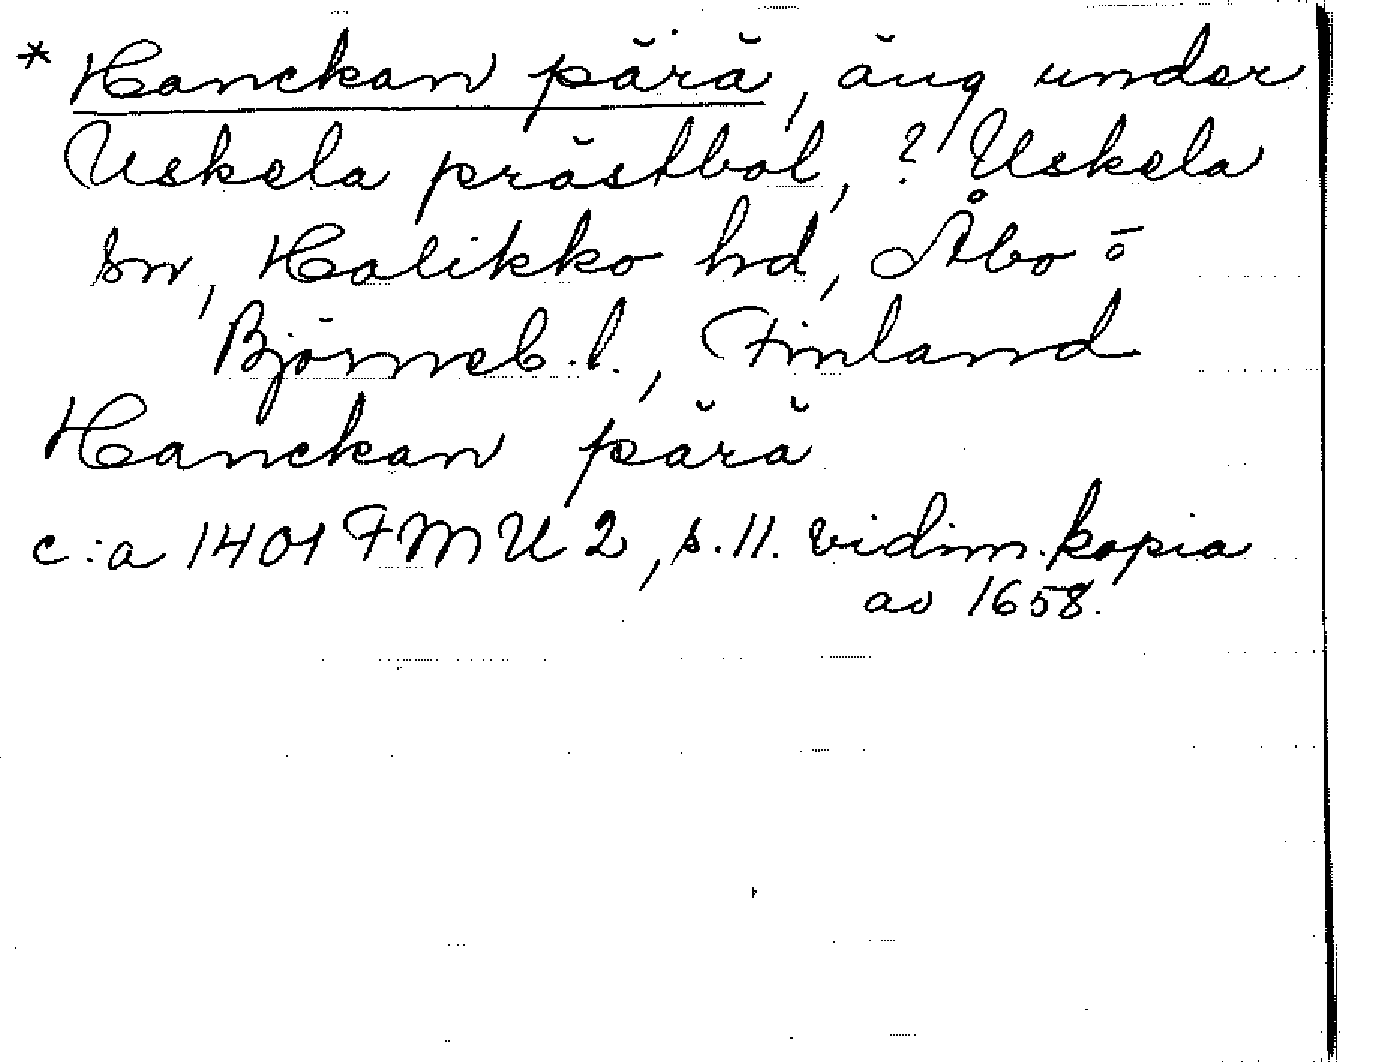 * Hanckan pärä, äng under
Uskela prästbol, ? Uskela
sn, Halikko hd, Åbo o
Björneb. l., Finland
Hanckan pärä
c:a 1401 FMU 2, s. 11. vidim. kopia
av 1658.